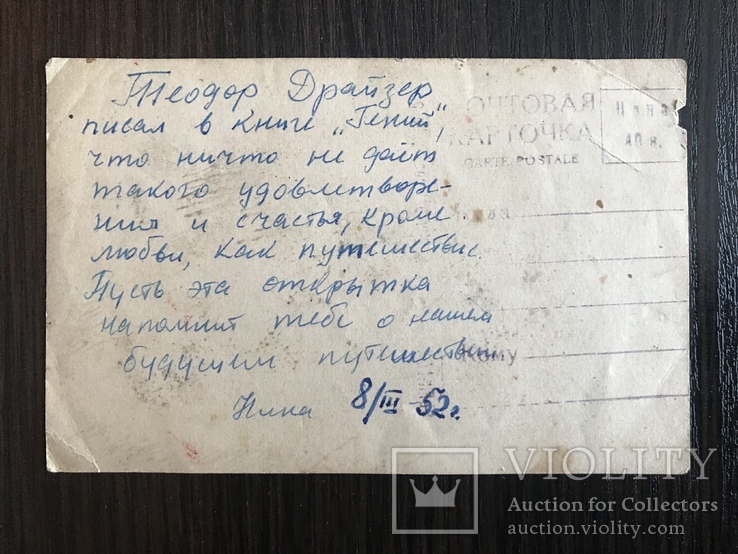 Теодор Драйзер
писал в книге „Гений“,
что ничто не даёт
такого удовлетворе-
ния и счастья, кроме
любви, как путешествие.
Пусть эта открытка
напомнит тебе о нашем
будущем путешествии.
Нина 8/III 52г.
ПОЧТОВАЯ
КАРТОЧКА
CARTE POSTALE
Цена
40 к.
Куда
Кому
VIOLITY
Auction for Collectors
auction.violity.com